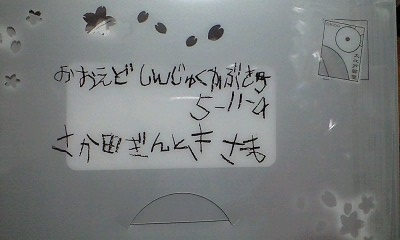 おおえど しんじゅくかぶき町
5-11-4
さか田ぎんときさま